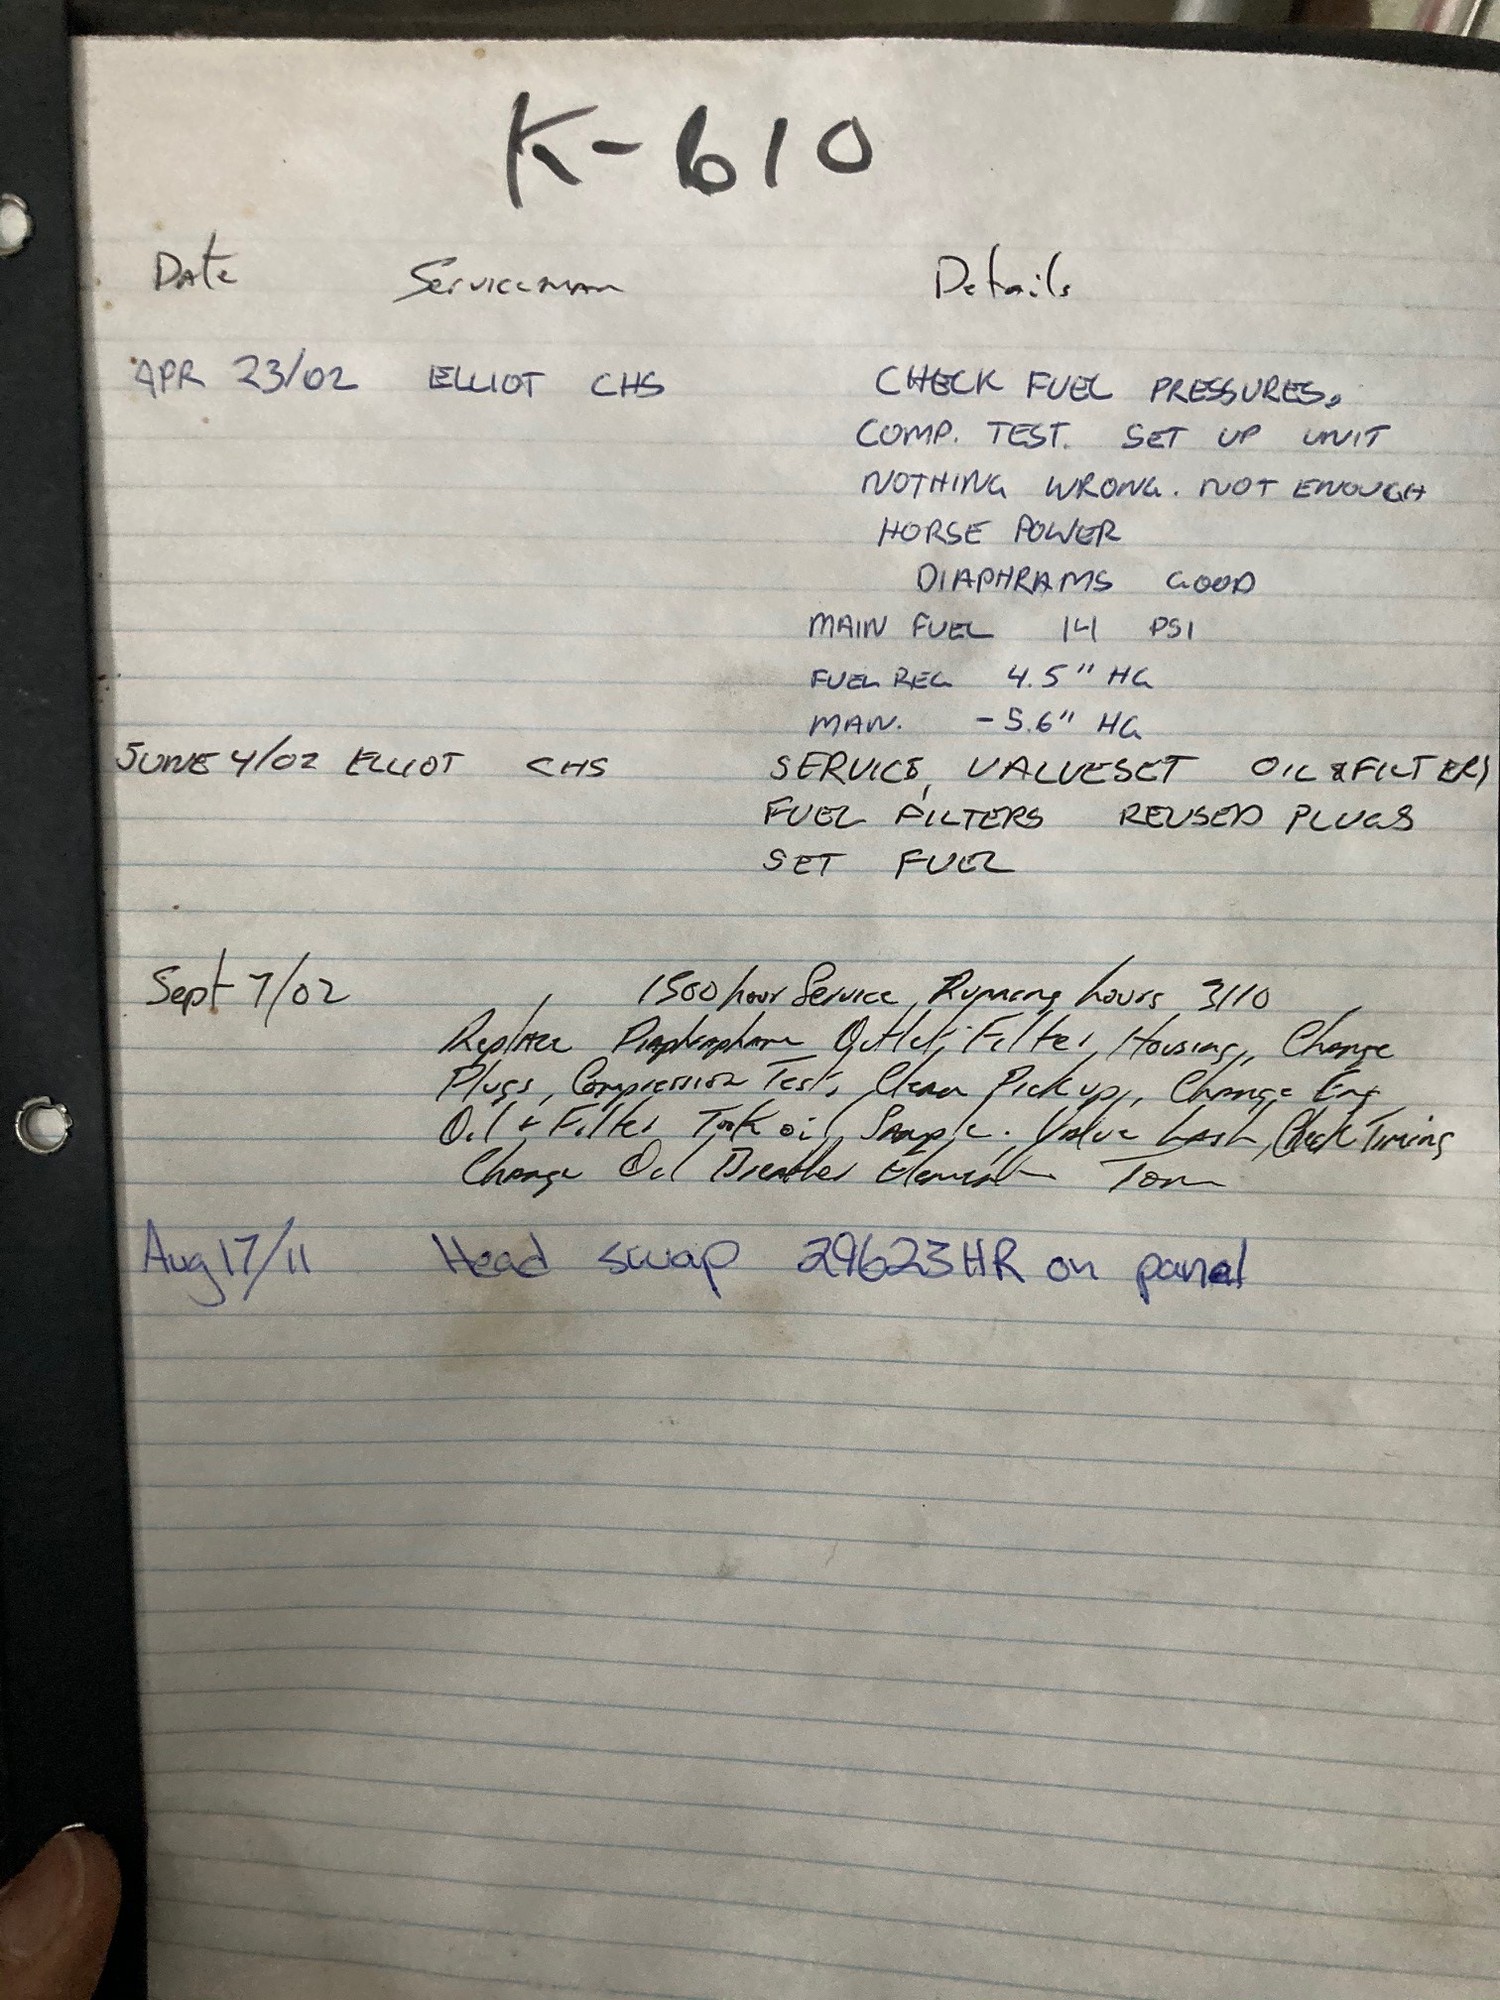 K-610
Date Serviceman Details
APR 23/02 ELLIOT CHS CHECK FUEL PRESSURES,
COMP. TEST. SET UP UNIT
NOTHING WRONG. NOT ENOUGH
HORSE POWER
DIAPHRAMS GOOD
MAIN FUEL 14 PSI
FUEL REG 4.5" HG
MAN. -5.6" HG
JUNE 4/02 ELLIOT CHS SERVICE, VALVESET OIL & FILTERS
FUEL FILTERS REUSED PLUGS
SET FUEL
Sept 7/02 1500 hour Service, Running hours 3110
Replace Outlet Filter Housing, Change
Plugs, Compression Test, Clean Pickup, Change Eng
Oil & Filter Took oil Sample. Valve Lash, Check Timing
Change Oil Breather Element Tom
Aug 17/11 Head swap 29623HR on panel